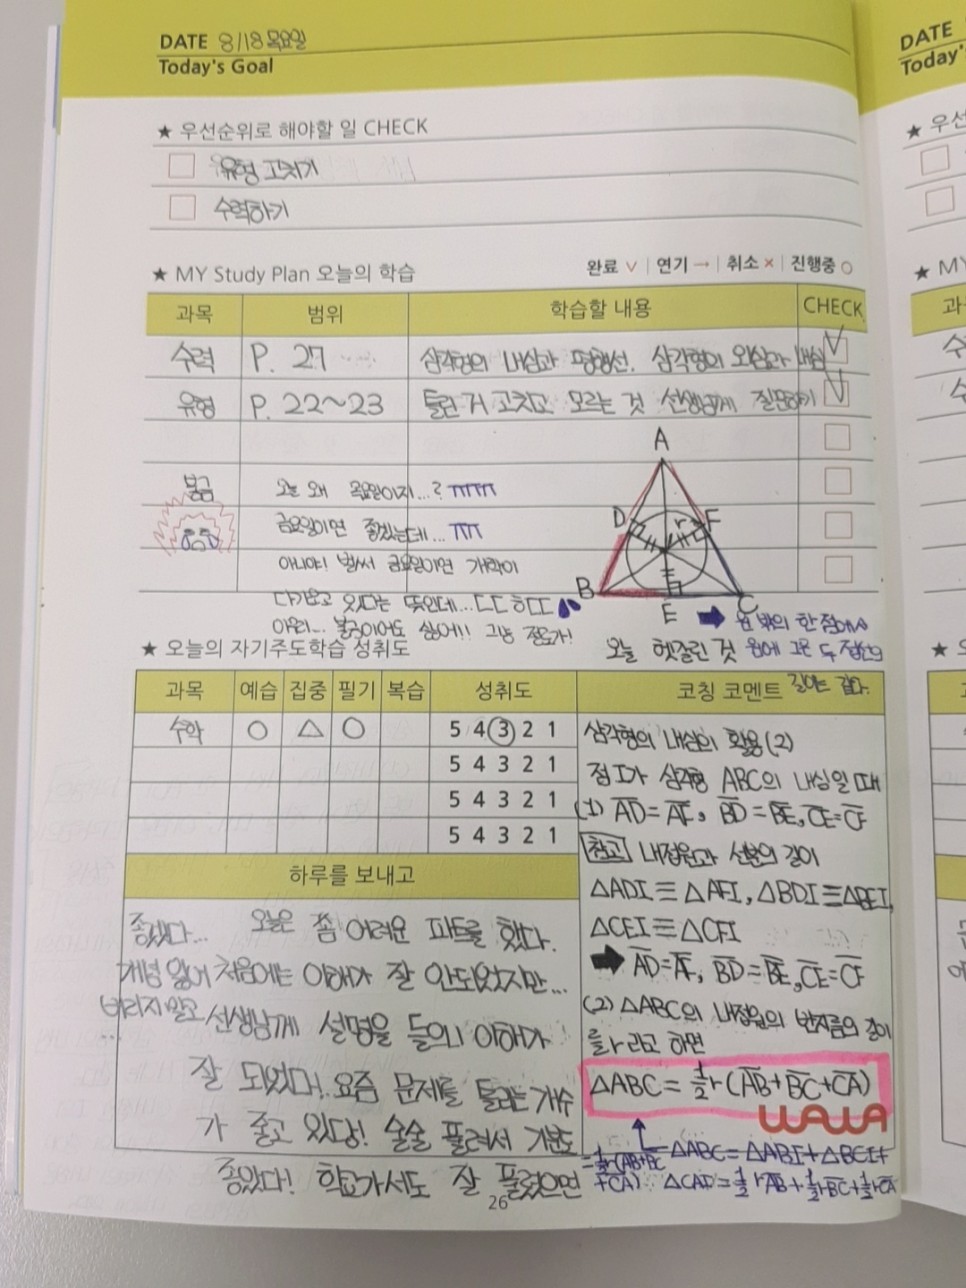 DATE 8/18 목요일
Today's Goal
★ 우선순위로 해야할 일 CHECK
유형 고치기
수력하기
★ MY Study Plan 오늘의 학습 완료 ∨ | 연기 → | 취소 × | 진행중 ○
과목 범위 학습할 내용 CHECK
수력 P. 27 삼각형의 내심과 평행선. 삼각형의 외심과 내심
유형 P. 22~23 틀린 거 고치고 모르는 것 선생님께 질문하기
A
불금 오늘 왜 목요일이지...? ㅠㅠㅠ
D r F
금요일이면 좋겠는데... ㅠㅠ
아니야! 벌써 금요일이면 개학이
B E C
다가오고 있다는 뜻인데...ㄷㄷㅎㄷㄷ
➡ 원 밖의 한 점에서
불금이어도 싫어!! 그냥
오늘 헷갈린 것 원에 그은 두 접선의
길이는 같다.
★ 오늘의 자기주도학습 성취도
과목 예습 집중 필기 복습 성취도 코칭 코멘트
수학 ○ △ ○ 5 4 3 2 1
5 4 3 2 1
5 4 3 2 1
5 4 3 2 1
삼각형의 내심의 활용(2)
점 I가 삼각형 ABC의 내심일 때
(1) AD=AF, BD=BE, CE=CF
참고 내접원과 선분의 길이
△ADI≡△AFI, △BDI≡△BEI,
△CEI≡△CFI
➡ AD=AF, BD=BE, CE=CF
(2) △ABC의 내접원의 반지름의 길이
를 r라고 하면
△ABC = ½r(AB+BC+CA)
WAWA
△ABC=△ABI+△BCI+
△CAI=½rAB+½rBC+½rCA
=½r(AB+BC
+CA)
하루를 보내고
좋았다... 오늘은 쫌 어려운 파트를 했다.
개념 읽어 처음에는 이해가 잘 안되었지만...
버리지 말고 선생님께 설명을 들으니 이해가
잘 되었다! 요즘 문제를 틀리는 개수
가 줄고 있당! 술술 풀려서 기분도
좋았다! 학교가서도 잘 풀렸으면
26